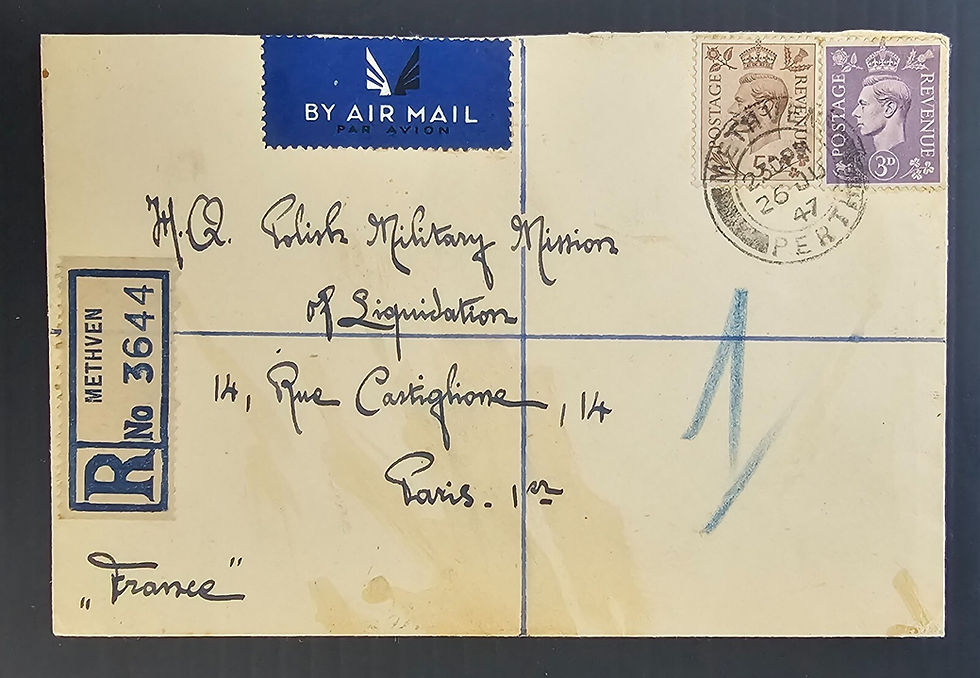 BY AIR MAIL
PAR AVION
POSTAGE REVENUE
5D
POSTAGE REVENUE
3D
METHVEN
26 JL
47
PERTH
H.Q. Polish Military Mission
of Liquidation
14, Rue Castiglione, 14
Paris. 1er
„France"
R No 3644
METHVEN
1